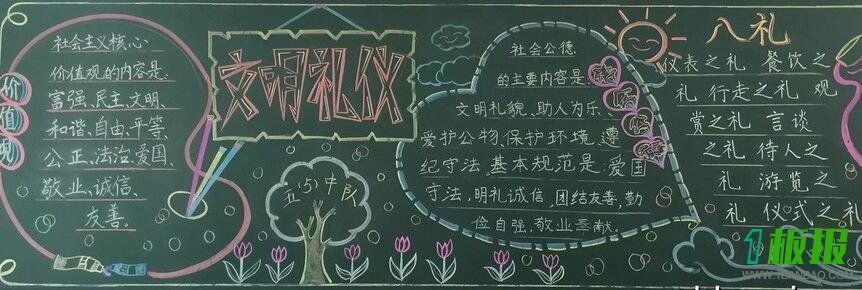 价
值
观
社会主义核心
价值观的内容是:
富强、民主、文明、
和谐、自由、平等、
公正、法治、爱国、
敬业、诚信、
友善。
文明礼仪
五(5)中队
社会公德
的主要内容是:
文明礼貌、助人为乐、
爱护公物、保护环境、遵
纪守法。基本规范是:爱国
守法,明礼诚信,团结友善,勤
俭自强,敬业奉献。
八礼
仪表之礼 餐饮之
礼 行走之礼 观
赏之礼 言谈
之礼 待人之
礼 游览之
礼 仪式之礼
1板报
WWW.1BANBAO.COM